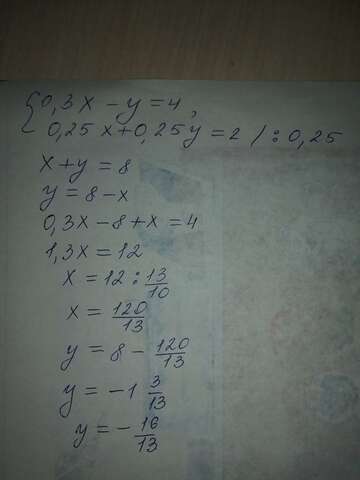 {0,3x − y = 4,
0,25x + 0,25y = 2 / : 0,25
x + y = 8
y = 8 − x
0,3x − 8 + x = 4
1,3x = 12
x = 12 : 13/10
x = 120/13
y = 8 − 120/13
y = −1 3/13
y = − 16/13